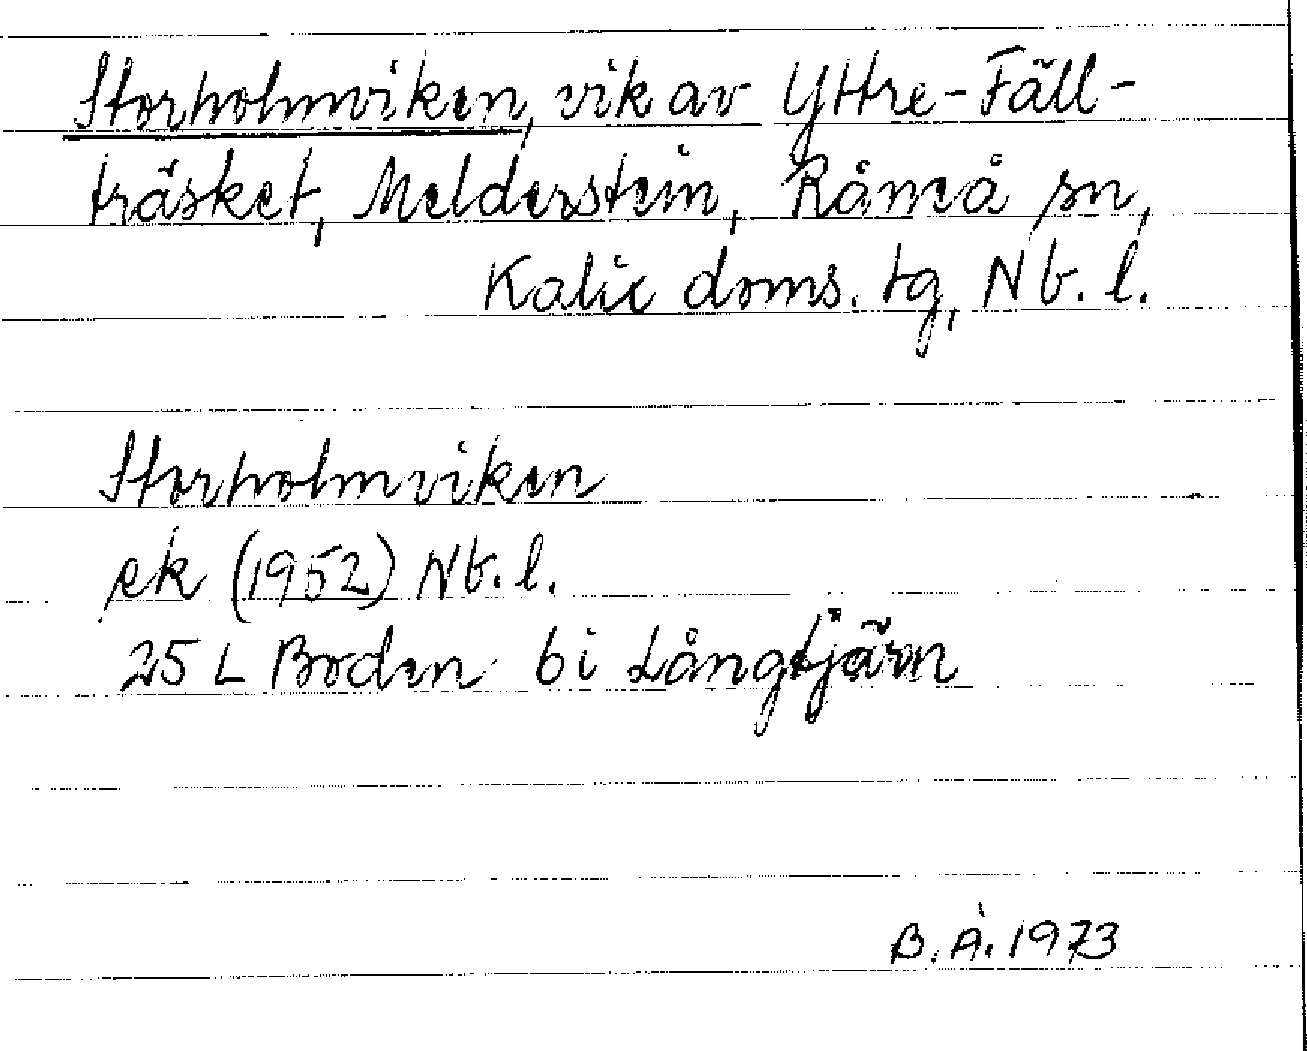 Storholmviken, vik av Yttre-Fäll-
träsket, Melderstein, Råneå sn,
Kalix doms. tg, Nb. l.
Storholmviken
ek (1952) Nb. l.
25 L Boden 6 i Långtjärn
B. Å. 1973